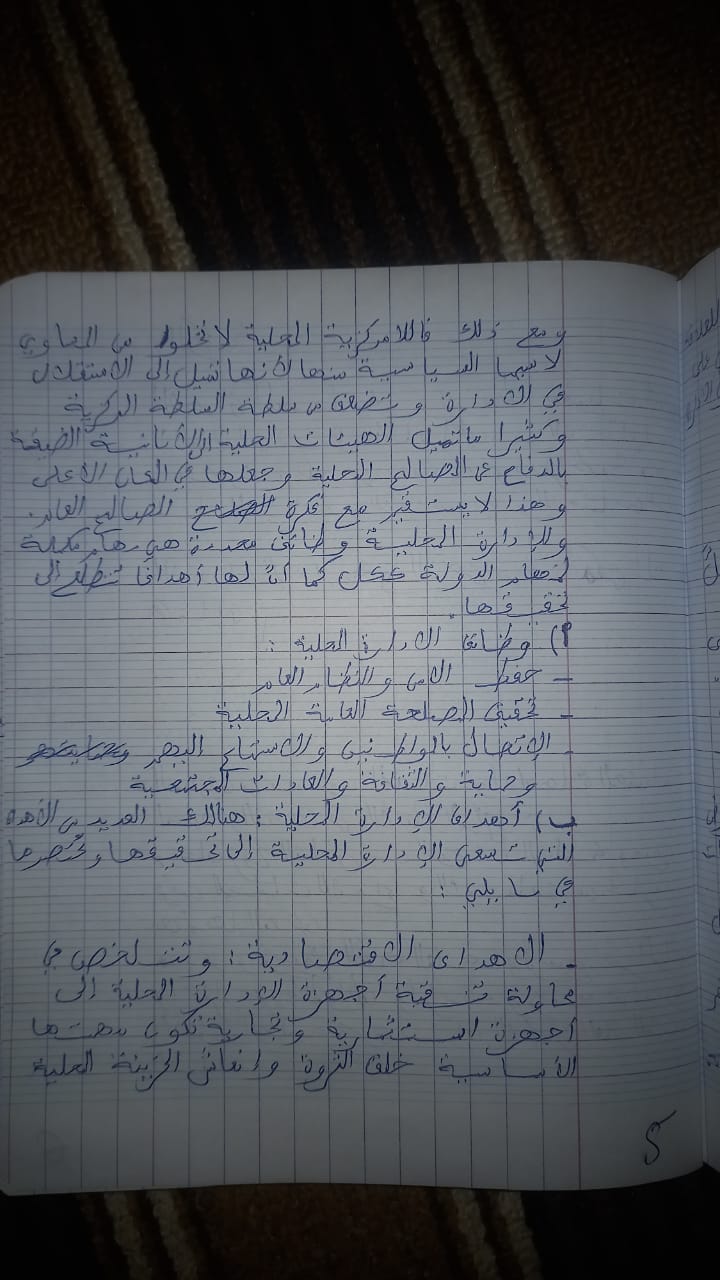 ومع ذلك فاللامركزية المحلية لا تخلوا من المساوئ
لا سيما السياسية منها لأنها تميل إلى الاستقلال
في الإدارة وتضعف من سلطة السلطة المركزية
وكثيرا ما تميل الهيئات المحلية إلى الأنانية الضيقة
بالدفاع عن المصالح المحلية وجعلها في المحل الأعلى
وهذا لا يستقيم مع فكرة الصالح العام.
وللإدارة المحلية وظائف محددة هي مهام مكملة
لمهام الدولة ككل كما أن لها أهدافا تتطلع إلى
تحقيقها.
أ) وظائف الإدارة المحلية :
- حفظ الأمن والنظام العام
- تحقيق المصلحة العامة المحلية
- الإتصال بالمواطنين والاستماع إليهم
وحماية والثقافة والعادات المجتمعية
ب) أهداف الإدارة المحلية : هنالك العديد من الأهداف
التي تسعى الإدارة المحلية إلى تحقيقها ونختصرها
في ما يلي :
- الاهداف الاقتصادية : وتتلخص في
محاولة ترقية أجهزة الإدارة المحلية الى
أجهزة استثمارية وتجارية تكون مهمتها
الأساسية خلق الثروة وانعاش الخزينة المحلية
5